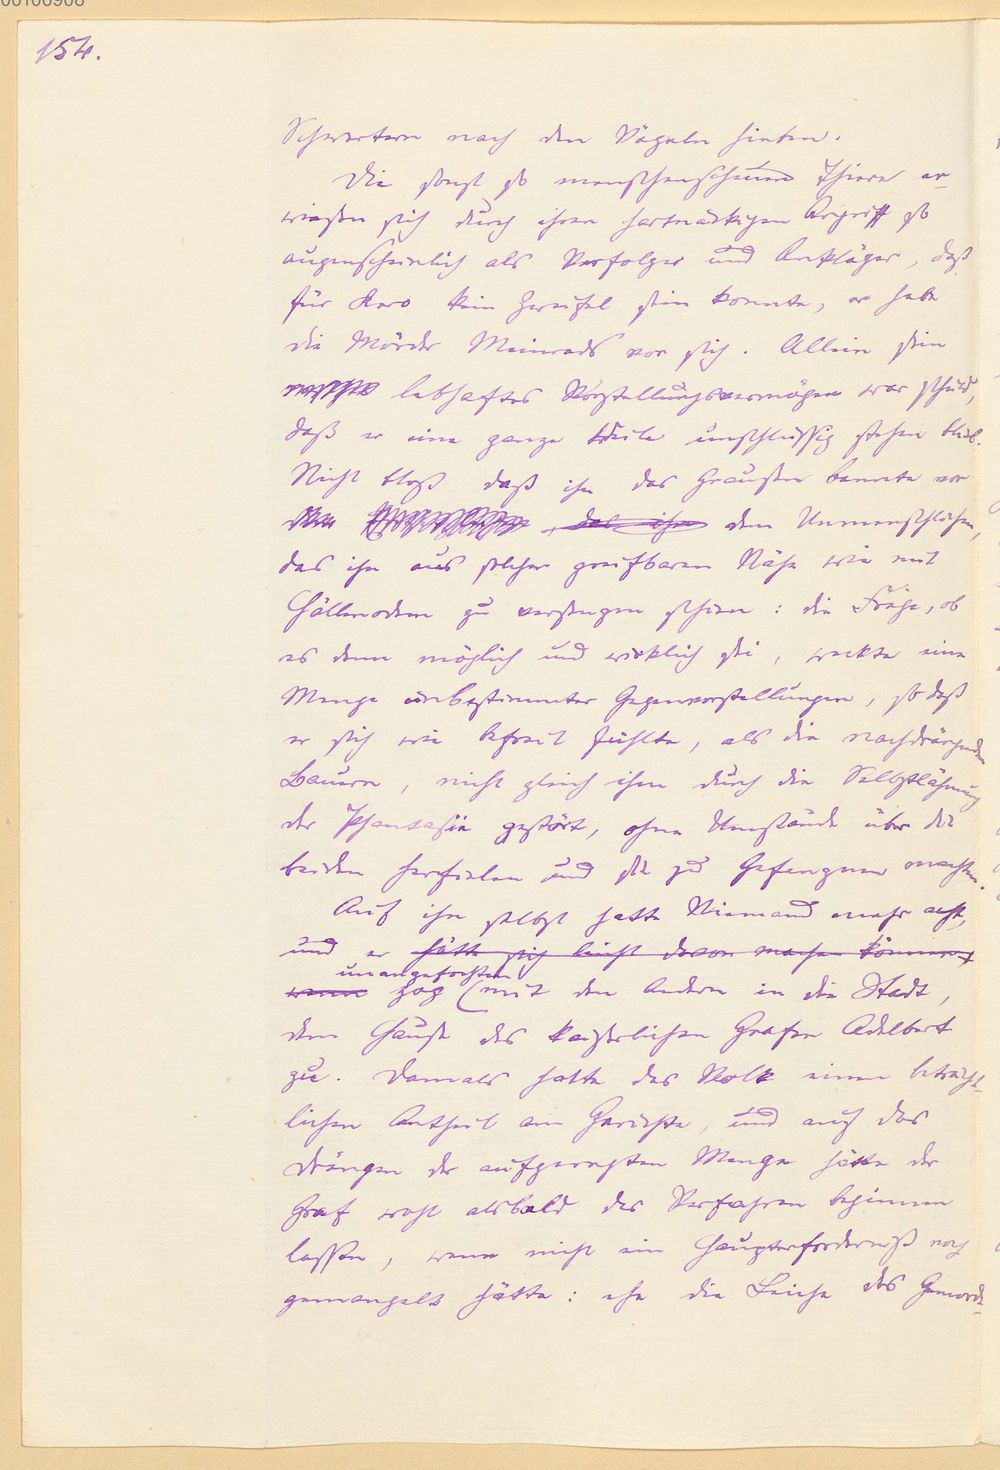 00106908
154.
Schwertern nach den Vögeln hieben.
Die sonst so menschenscheuen Thiere er-
wiesen sich durch ihren hartnäckigen Angriff so
augenscheinlich als Verfolger und Ankläger, daß
für Kero kein Zweifel sein konnte, er habe
die Mörder Meinrads vor sich. Allein sein
lebhaftes Vorstellungsvermögen war schuld,
daß er eine ganze Weile unschlüssig stehen blieb.
Nicht bloß daß ihn das Grausen bannte vor
das ihn dem Unmenschlichen,
das ihn aus solcher greifbaren Nähe wie mit
Höllenodem zu versengen schien: die Frage, ob
es denn möglich und wirklich sei, weckte eine
Menge unbestimmter Gegenvorstellungen, so daß
er sich wie befreit fühlte, als die nachdrängenden
Bauern, nicht gleich ihm durch die Selbstlähmung
der Phantasie gestört, ohne Umstände über die
beiden herfielen und sie zu Gefangenen machten.
Auf ihn selbst hatte Niemand mehr acht,
und er hätte sich leicht davon machen können,
unangefochten
wenn zog (mit den Andern in die Stadt,
dem Hause des kaiserlichen Grafen Adelbert
zu. Damals hatte das Volk einen beträcht-
lichen Antheil am Gerichte, und auf das
Drängen der aufgeregten Menge hätte der
Graf wohl alsbald das Verfahren beginnen
lassen, wenn nicht ein Haupterforderniß noch
gemangelt hätte: ehe die Leiche des Gemorde-